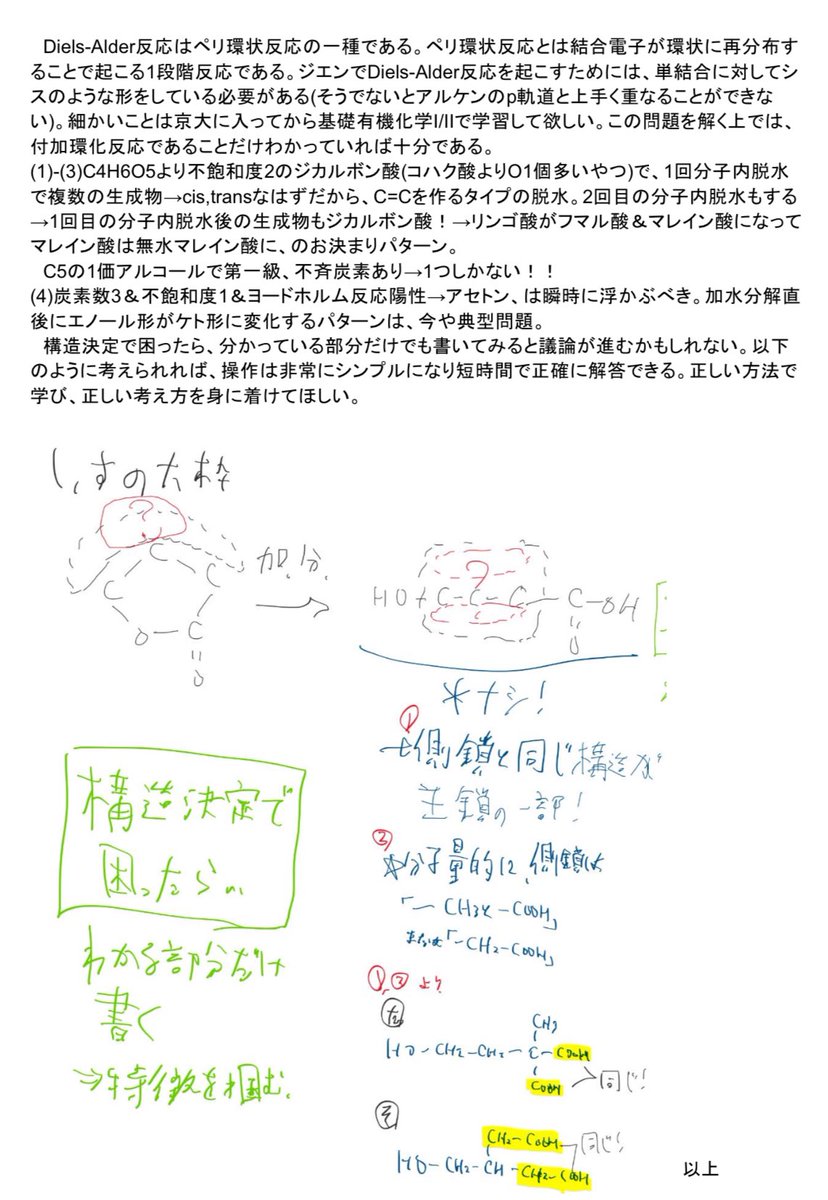 Diels-Alder反応はペリ環状反応の一種である。ペリ環状反応とは結合電子が環状に再分布す
ることで起こる1段階反応である。ジエンでDiels-Alder反応を起こすためには、単結合に対してシ
スのような形をしている必要がある(そうでないとアルケンのp軌道と上手く重なることができな
い)。細かいことは京大に入ってから基礎有機化学I/IIで学習して欲しい。この問題を解く上では、
付加環化反応であることだけわかっていれば十分である。
(1)-(3)C4H6O5より不飽和度2のジカルボン酸(コハク酸よりO1個多いやつ)で、1回分子内脱水
で複数の生成物→cis,transなはずだから、C=Cを作るタイプの脱水。2回目の分子内脱水もする
→1回目の分子内脱水後の生成物もジカルボン酸！→リンゴ酸がフマル酸＆マレイン酸になって
マレイン酸は無水マレイン酸に、のお決まりパターン。
C5の1価アルコールで第一級、不斉炭素あり→1つしかない！！
(4)炭素数3＆不飽和度1＆ヨードホルム反応陽性→アセトン、は瞬時に浮かぶべき。加水分解直
後にエノール形がケト形に変化するパターンは、今や典型問題。
構造決定で困ったら、分かっている部分だけでも書いてみると議論が進むかもしれない。以下
のように考えられれば、操作は非常にシンプルになり短時間で正確に解答できる。正しい方法で
学び、正しい考え方を身に着けてほしい。
し,すの大枠
?
C
C
C
O
C
O
加.分.
HO
C-C-C-C-OH
?
O
*ナシ!
①
側鎖と同じ構造が
主鎖の一部!
②
分子量的に、側鎖は
または「-CH2-COOH」
①,② より
た
CH3
HO-CH2-CH2-C-COOH
COOH
同じ!
そ
CH2-COOH
同じ!
HO-CH2-CH-CH2-COOH
構造決定で
困ったら
わかる部分だけ
書く
⇒特徴を掴む.
以上